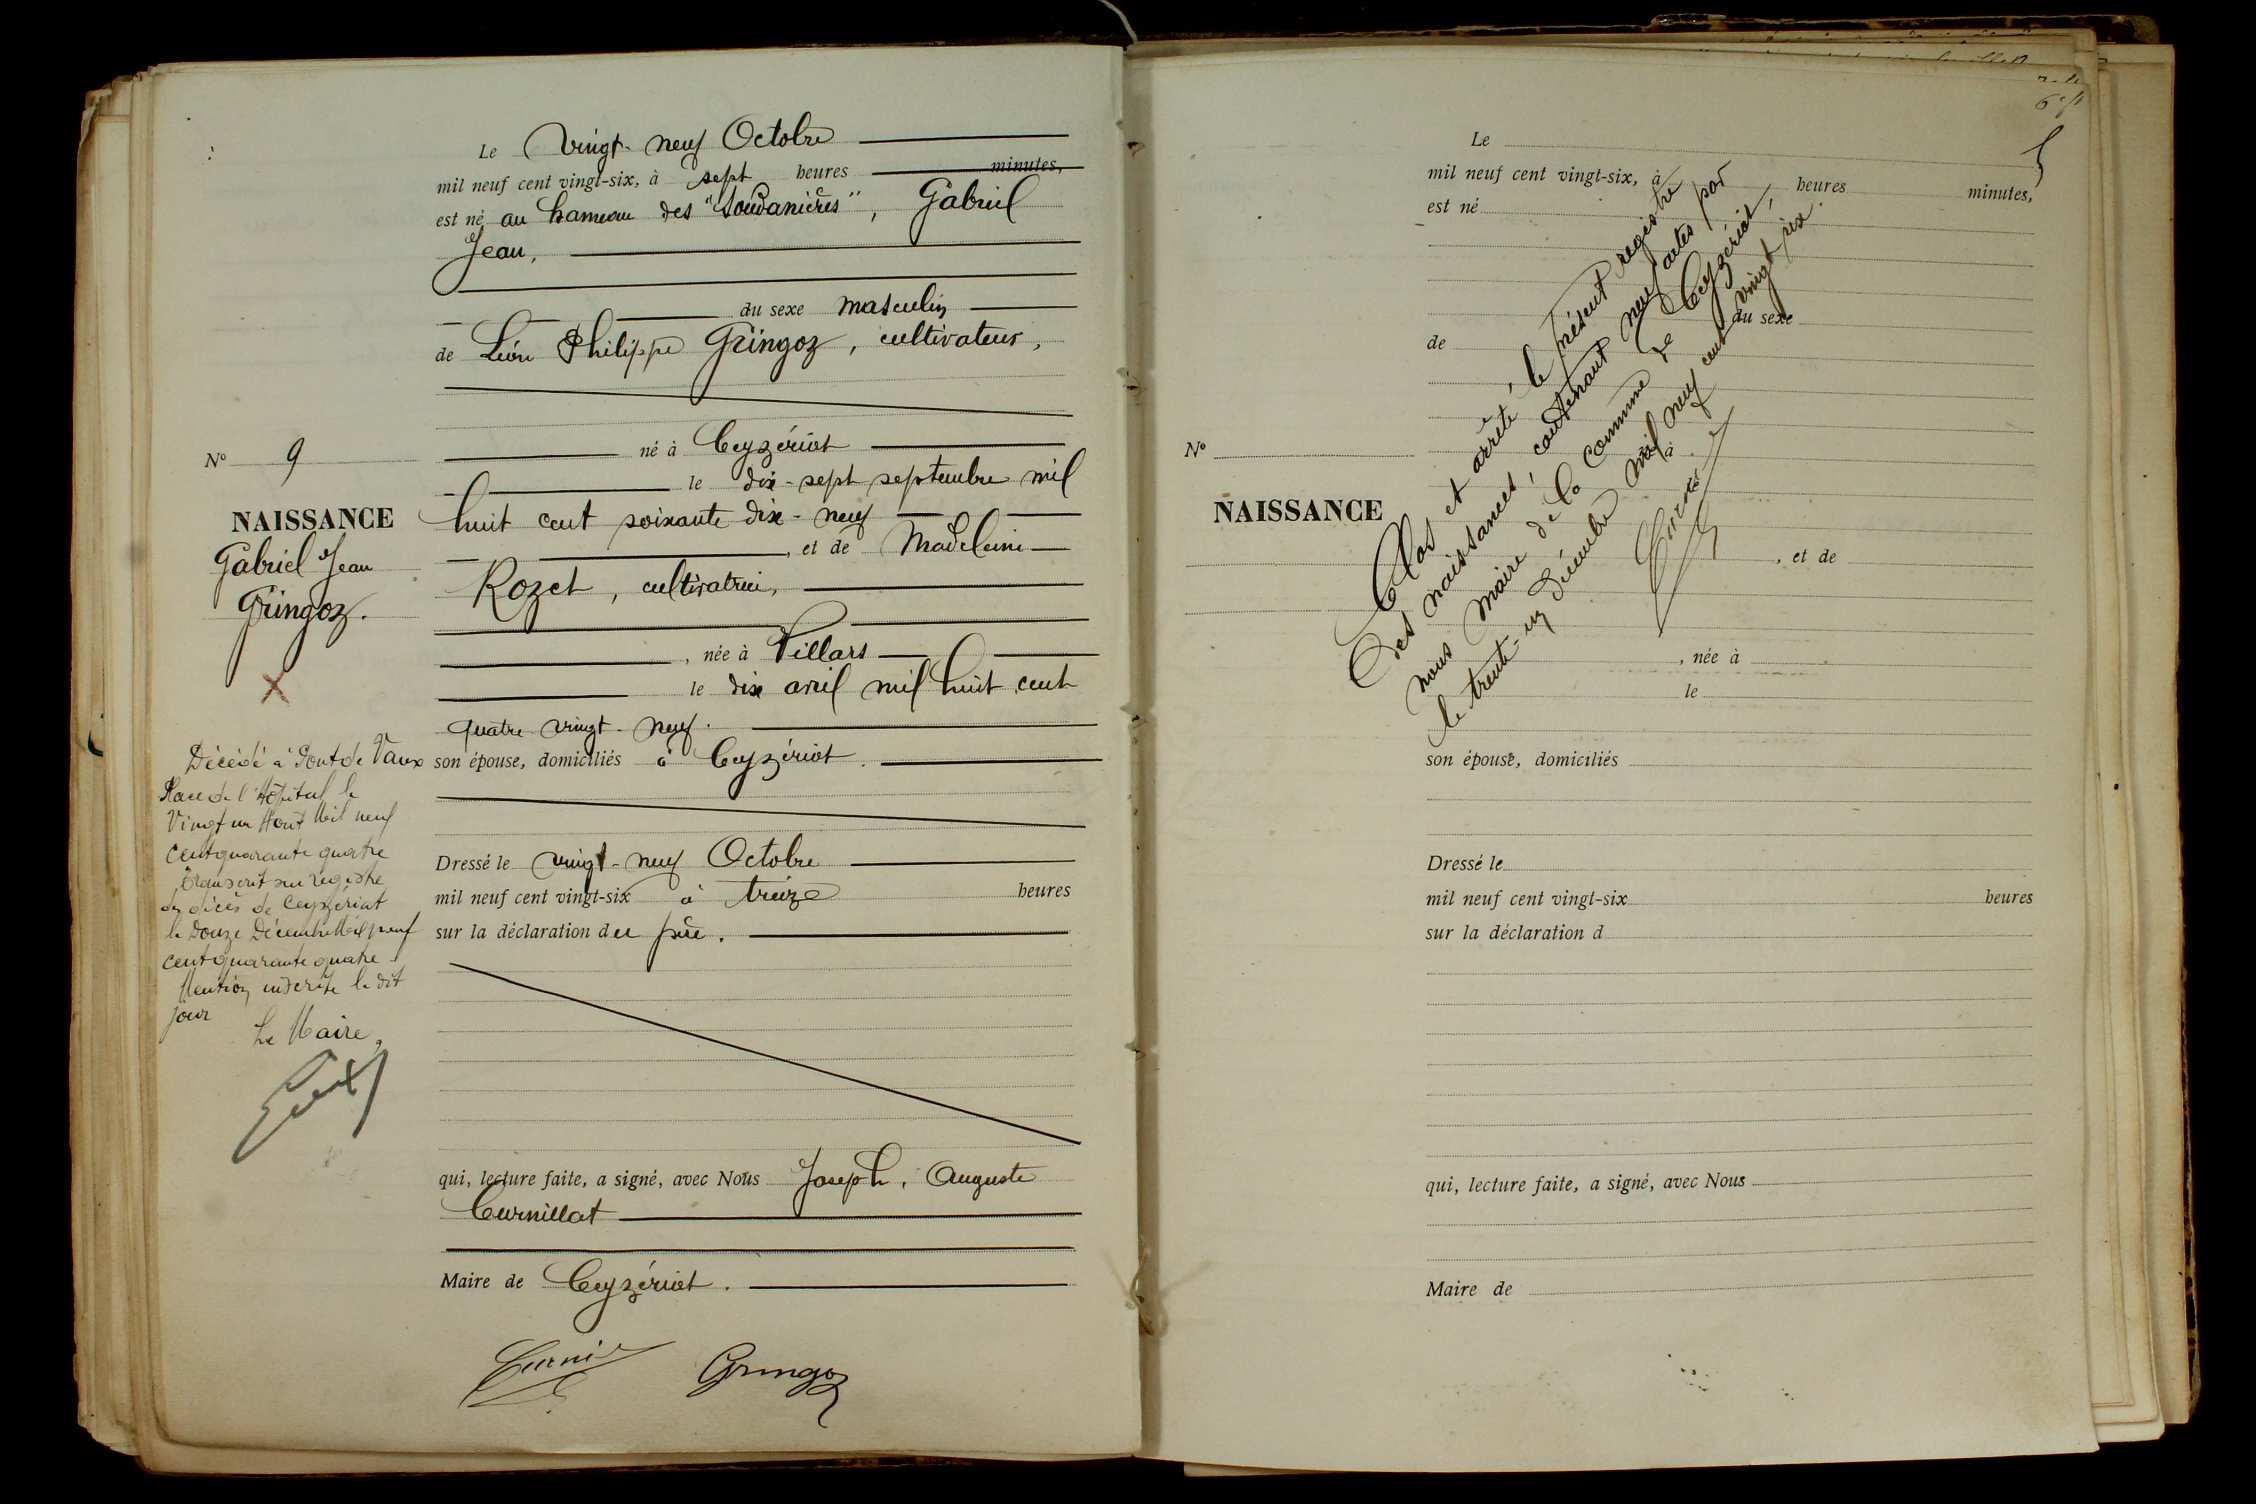 Le vingt-neuf Octobre
mil neuf cent vingt-six, à sept heures minutes,
est né au hameau des "Soudanières", Gabriel
Jean,
du sexe masculin
de Léon Philippe Gringoz, cultivateur,
né à Ceyzériat
le dix-sept septembre mil
huit cent soixante dix-neuf
, et de Madeleine
Rozet, cultivatrice,
, née à Villars
le dix avril mil huit cent
quatre vingt-neuf.
son épouse, domiciliés à Ceyzériat.
Dressé le vingt-neuf Octobre
mil neuf cent vingt-six à treize heures
sur la déclaration du père.
qui, lecture faite, a signé, avec Nous Joseph, Auguste
Curnillat
Maire de Ceyzériat.
Gringoz
N° 9
NAISSANCE
Gabriel Jean
Gringoz.
Décédé à Pont de Vaux
Place de l'Hôpital le
Vingt un Août Mil neuf
cent quarante quatre
transcrit sur registre
des décès de Ceyzériat
le Douze Décembre Mil neuf
cent quarante quatre
Mention inscrite le dit
jour
Le Maire,
Le
mil neuf cent vingt-six, à heures minutes,
est né
du sexe
de
N°
à
NAISSANCE
, et de
, née à
le
son épouse, domiciliés
Dressé le
mil neuf cent vingt-six heures
sur la déclaration d
qui, lecture faite, a signé, avec Nous
Maire de
Clos et arrêté, le présent registre
des naissances, contenant neuf actes par
nous maire de la commune de Ceyzériat,
le trente-un Décembre mil neuf cent vingt six.